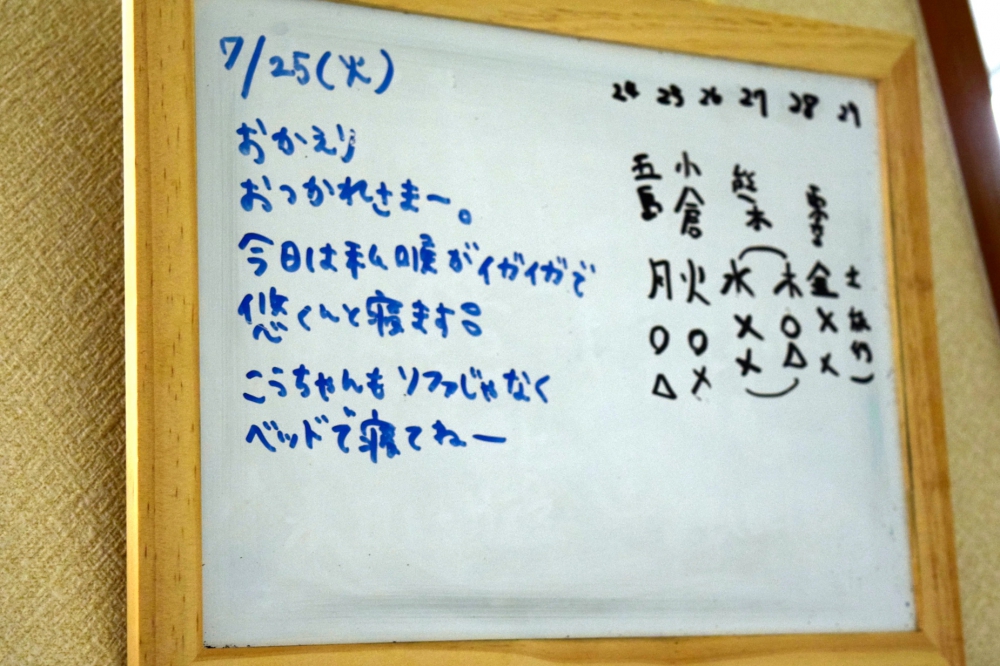 7/25(火)
おかえり
おつかれさまー。
今日は私喉がイガイガで
悠くんと寝ます
こうちゃんもソファじゃなく
ベッドで寝てねー
24 25 26 27 28 29
五島 小倉 熊本
月 火 水 木 金 土
○ ○ × ○ ×
△ × × △ ×